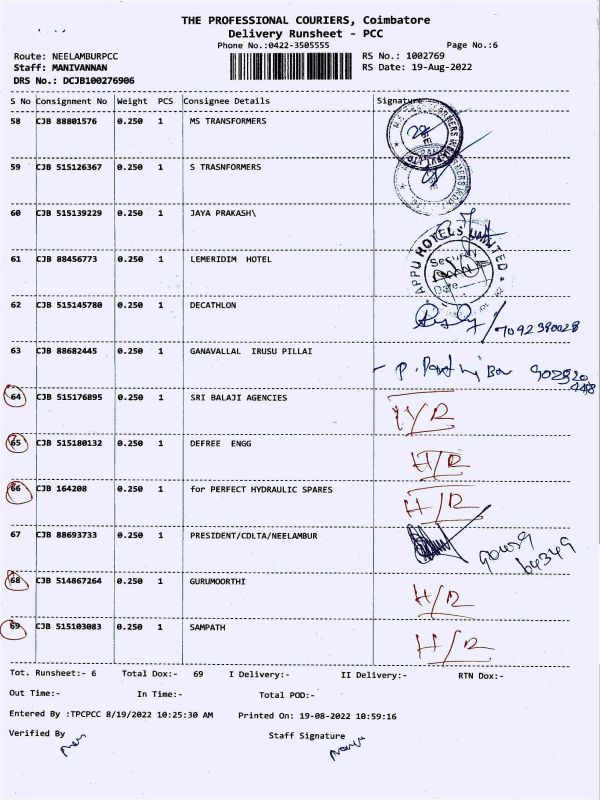 THE PROFESSIONAL COURIERS, Coimbatore
Delivery Runsheet - PCC
Phone No.:0422-3505555 Page No.:6
Route: NEELAMBURPCC RS No.: 1002769
Staff: MANIVANNAN RS Date: 19-Aug-2022
DRS No.: DCJB100276906
S No Consignment No Weight PCS Consignee Details Signature
58 CJB 88801576 0.250 1 MS TRANSFORMERS
59 CJB 515126367 0.250 1 S TRASNFORMERS
60 CJB 515139229 0.250 1 JAYA PRAKASH\
61 CJB 88456773 0.250 1 LEMERIDIM HOTEL
APPU HOTELS LIMITED
Security
Date
62 CJB 515145780 0.250 1 DECATHLON
7092390028
63 CJB 88682445 0.250 1 GANAVALLAL IRUSU PILLAI
64 CJB 515176895 0.250 1 SRI BALAJI AGENCIES H/R
65 CJB 515180132 0.250 1 DEFREE ENGG H/R
66 CJB 164208 0.250 1 for PERFECT HYDRAULIC SPARES H/R
67 CJB 88693733 0.250 1 PRESIDENT/CDLTA/NEELAMBUR
68 CJB 514867264 0.250 1 GURUMOORTHI H/R
69 CJB 515103083 0.250 1 SAMPATH H/R
Tot. Runsheet:- 6 Total Dox:- 69 I Delivery:- II Delivery:- RTN Dox:-
Out Time:- In Time:- Total POD:-
Entered By :TPCPCC 8/19/2022 10:25:30 AM Printed On: 19-08-2022 10:59:16
Verified By Staff Signature